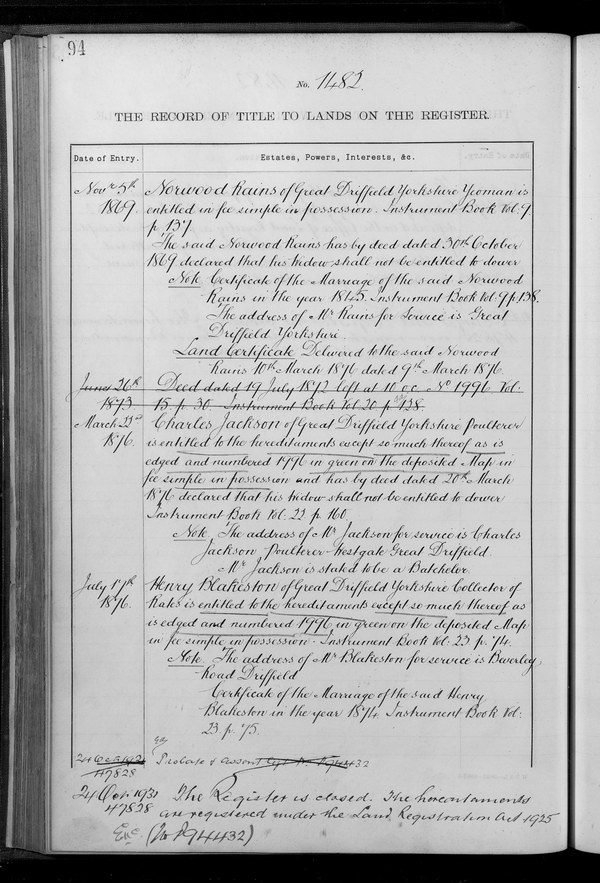 94
No. 1482.
THE RECORD OF TITLE TO LANDS ON THE REGISTER.
Date of Entry. Estates, Powers, Interests, &c.
Novr 5th Norwood Rains of Great Driffield Yorkshire Yeoman is
1869. entitled in fee simple in possession. Instrument Book Vol. 9
p 137
The said Norwood Rains has by deed dated 30th October
1869 declared that his Widow shall not be entitled to dower
Note Certificate of the Marriage of the said Norwood
Rains in the year 1845. Instrument Book Vol. 9 p 138.
The address of Mr Rains for service is Great
Driffield Yorkshire.
Land Certificate Delivered to the said Norwood
Rains 10th March 1876 dated 9th March 1876.
June 26th Deed dated 19 July 1872 left at 10 o.c No 1996 Vol.
1873 15 p. 30. Instrument Book Vol 20 p 138.
March 22nd Charles Jackson of Great Driffield Yorkshire Poulterer
1876. is entitled to the hereditaments except so much thereof as is
edged and numbered 1996 in green on the deposited Map in
fee simple in possession and has by deed dated 20th March
1876 declared that his Widow shall not be entitled to dower
Instrument Book Vol. 22 p 160
Note The address of Mr Jackson for service is Charles
Jackson Poulterer Westgate Great Driffield.
Mr Jackson is stated to be a Batchelor.
July 17th Henry Blakeston of Great Driffield Yorkshire Collector of
1876. Rates is entitled to the hereditaments except so much thereof as
is edged and numbered 1996 in green on the deposited Map
in fee simple in possession. Instrument Book Vol. 23 p. 74.
Note The address of Mr Blakeston for service is Beverley
Road Driffield
Certificate of the Marriage of the said Henry
Blakeston in the year 1874. Instrument Book Vol:
23 p 75.
24 Oct 1931 Probate & Assent
47828
24 Oct 1931 The Register is closed. The hereditaments
47828 are registered under the Land Registration Act 1925
(No P94432)